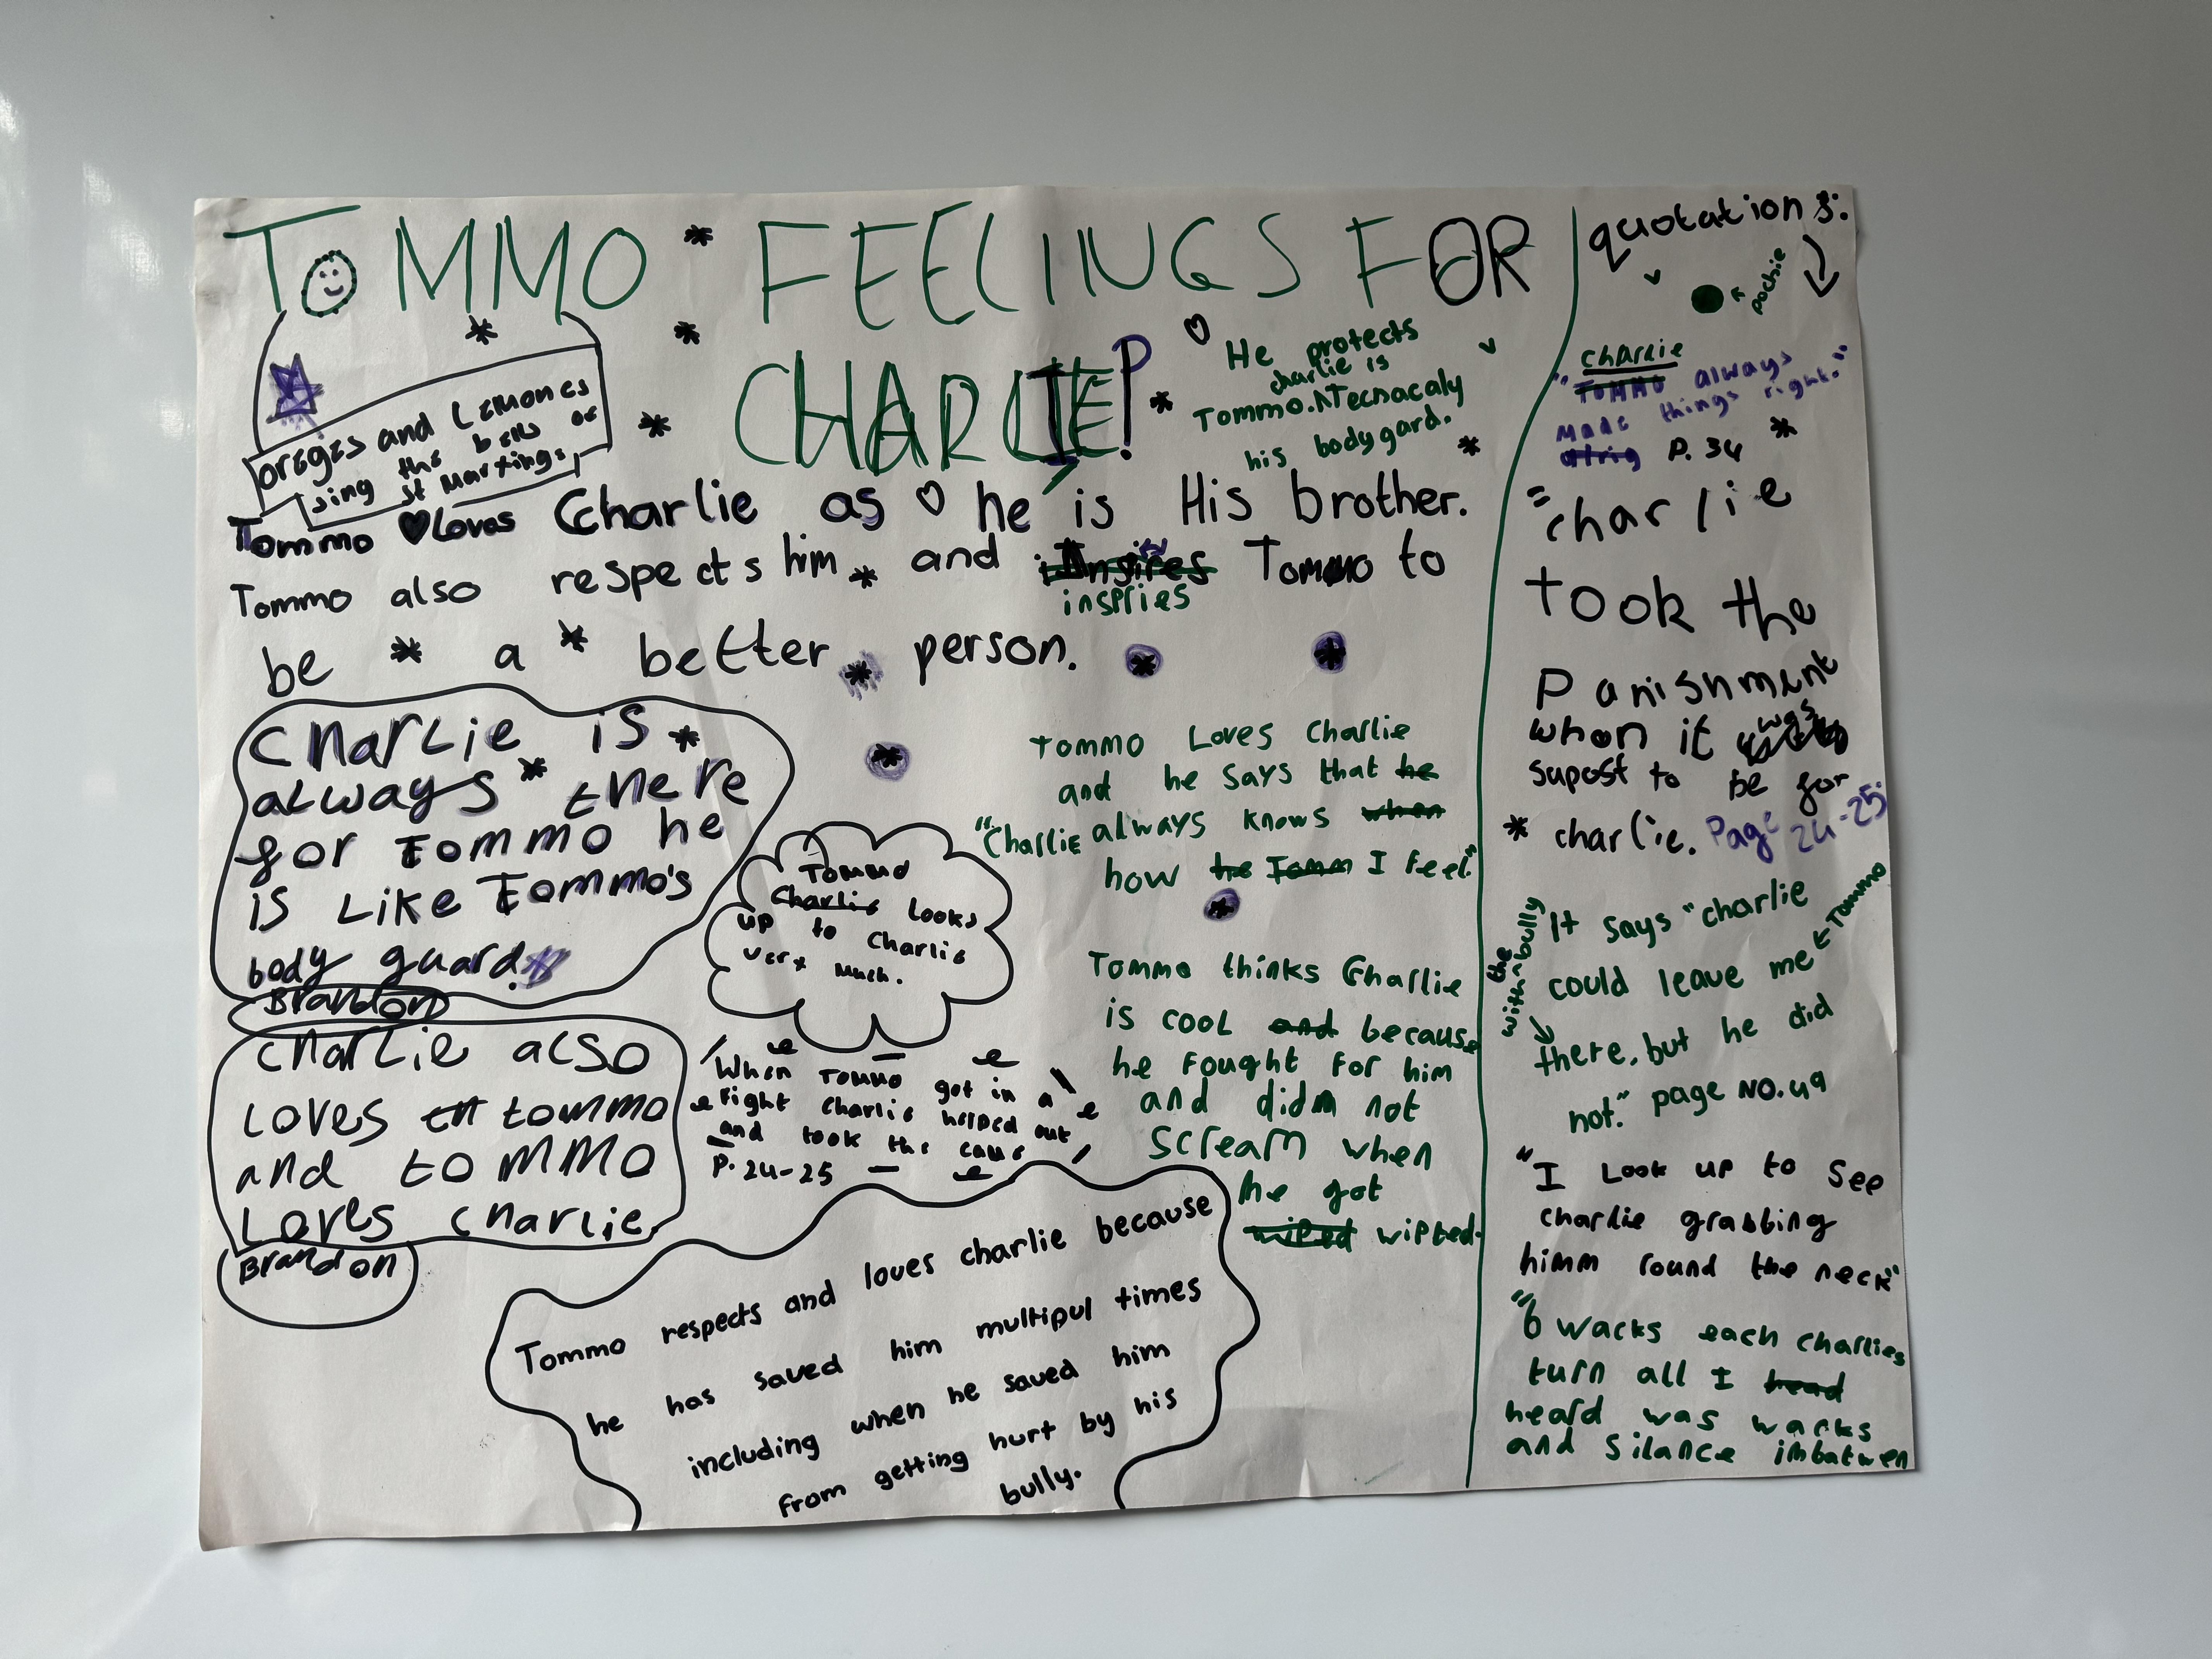 TOMMO * FEELINGS FOR
CHARLIE!
Oregies and Lemones
sing the bells of
st Martings
He protects
charlie is
Tommo. Tecnacaly
his bodygard.
Tommo loves Ccharlie as he is His brother.
Tommo also respects him * and insires Tommo to
inspries
be * a * better * person.
CHarLie is *
always * there
for Tommo he
is Like Tommo's
body guard.
Brandon
CharLie also
Loves tommo
and tommo
Loves charlie.
Brandon
Tommo
Charlie looks
up to Charlie
very Much.
"When Tommo got in a
fight Charlie helped out
and took the cane"
P. 24-25
Tommo respects and loves charlie because
he has saved him multipul times
including when he saved him
from getting hurt by his
bully.
Tommo Loves Charlie
and he says that he
"Charlie always knows when
how he Tomm I feel"
Tommo thinks Charlie
is cool and because
he fought for him
and didn not
scream when
he got
wiped wipted.
quotations:
pochie
charlie
"Tommo always
Made things right."
alrig P. 34
"charlie
took the
Panishment
when it was
supost to be for
* charlie. Page 24-25
It says "charlie
could leave me ← Tommo
with the bully
there, but he did
not." page NO. 49
"I Look up to see
charlie grabbing
himm round the neck"
"6 wacks each charlies
turn all I head
heard was wacks
and silance imbatwen